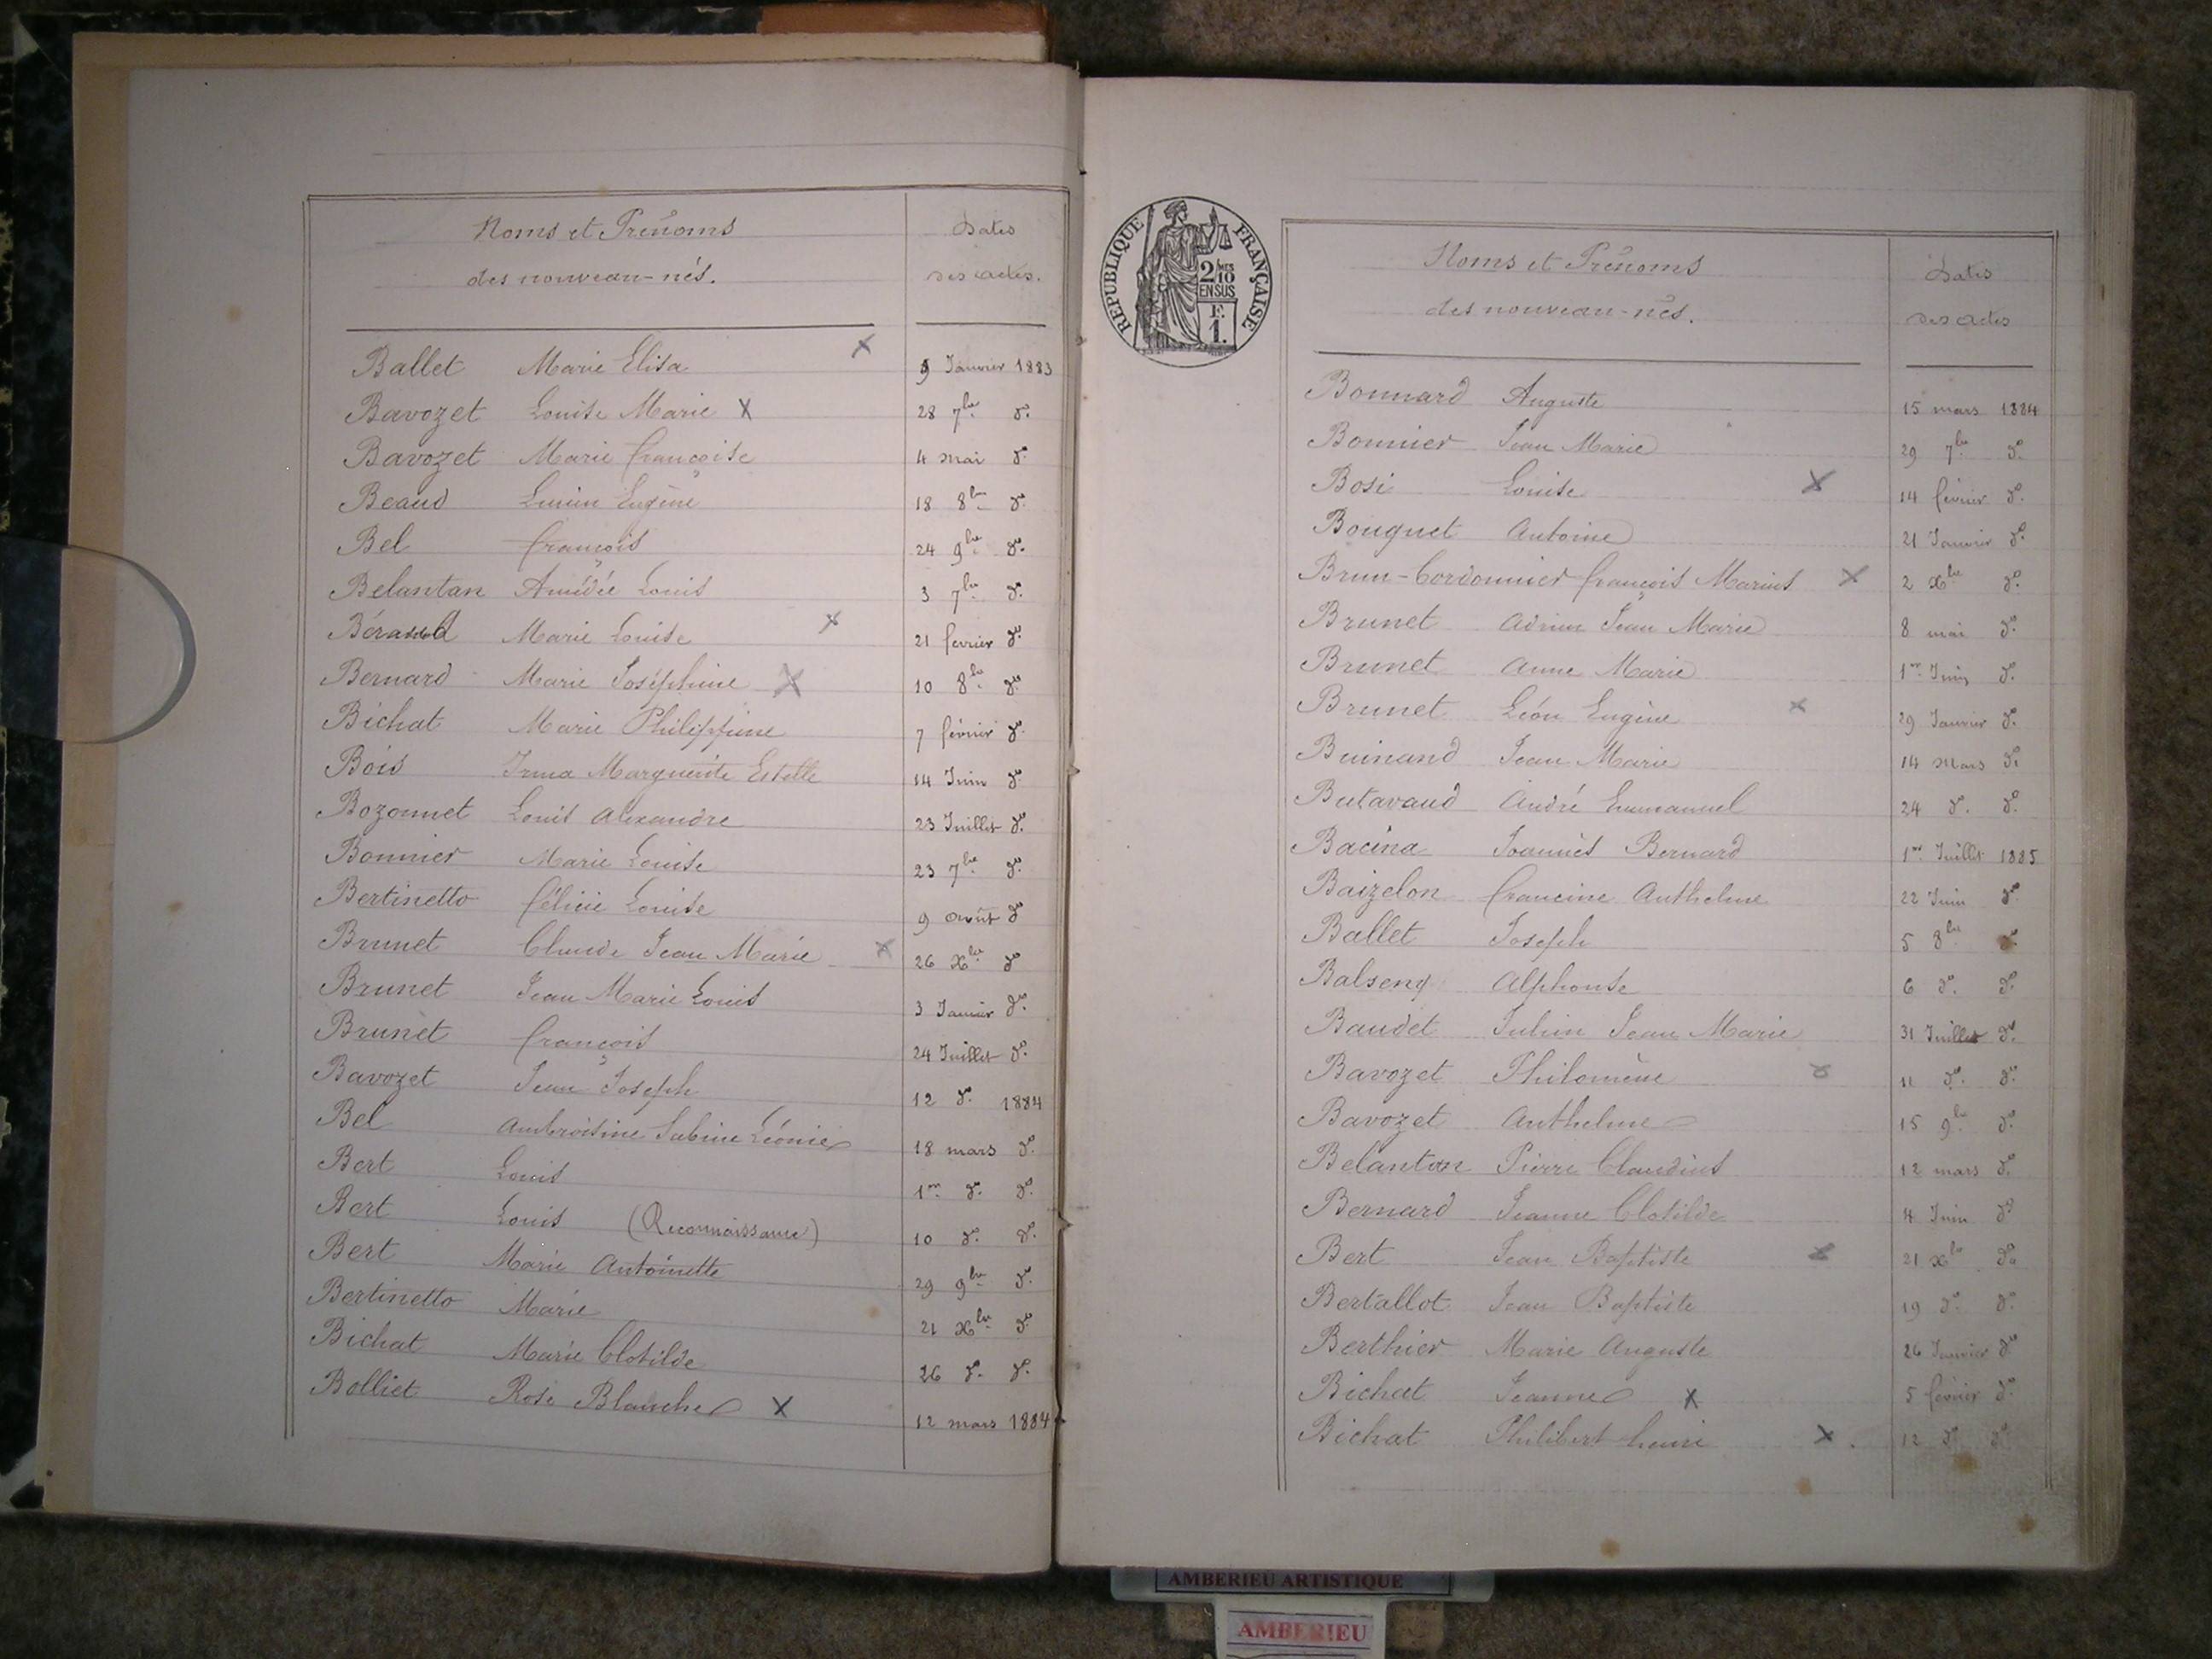 Noms et Prénoms
des nouveau-nés.
Dates
des actes.
Ballet Marie Elisa X 9 Janvier 1883
Bavozet Louise Marie X 28 7bre do
Bavozet Marie françoise 4 mai do
Beaud Lucien Eugène 18 8bre do
Bel françois 24 9bre do
Belantan Amédée Louis 3 7bre do
Béraud Marie Louise X 21 fevrier do
Bernard Marie Joséphine X 10 8bre do
Bichat Marie Philippine 7 février do
Bois Irma Marguerite Estelle 14 Juin do
Bozonnet Louis Alexandre 23 Juillet do
Bonnier Marie Louise 23 7bre do
Bertinetto félicie Louise 9 août do
Brunet Claude Jean Marie X 26 Xbre do
Brunet Jean Marie Louis 3 Janvier do
Brunet françois 24 Juillet do
Bavozet Jean Joseph 12 do 1884
Bel Ambroisine Sabine Léonie 18 mars do
Bert Louis 1er do do
Bert Louis (Reconnaissance) 10 do do
Bert Marie Antoinette 29 9bre do
Bertinetto Marie 21 Xbre do
Bichat Marie Clotilde 26 do do
Bolliet Rose Blanche X 12 mars 1884
REPUBLIQUE FRANÇAISE
2 MES
10
EN SUS
F.
1.
Noms et Prénoms
des nouveau-nés.
Dates
des actes
Bonnard Auguste 15 mars 1884
Bonnier Jean Marie 29 7bre do
Bosi Louise X 14 février do
Bouquet Antoine 21 Janvier do
Brun-Cordonnier françois Marius X 2 Xbre do
Brunet Adrien Jean Marie 8 mai do
Brunet Anne Marie 1er Juin do
Brunet Léon Eugène X 29 Janvier do
Buinand Jean Marie 14 mars do
Butavaud André Emmanuel 24 do do
Bacina Joannès Bernard 1er Juillet 1885
Baizelon francine Anthelme 22 Juin do
Ballet Joseph 5 8bre do
Balseny Alphonse 6 do do
Baudet Julien Jean Marie 31 Juillet do
Bavozet Philomène X 11 do do
Bavozet Anthelme 15 9bre do
Belantan Pierre Claudius 12 mars do
Bernard Jeanne Clotilde 4 Juin do
Bert Jean Baptiste X 21 Xbre do
Bertallot Jean Baptiste 19 do do
Berthier Marie Auguste 26 Janvier do
Bichat Jeanne X 5 février do
Bichat Philibert henri X 12 do do
AMBERIEU ARTISTIQUE
AMBERIEU